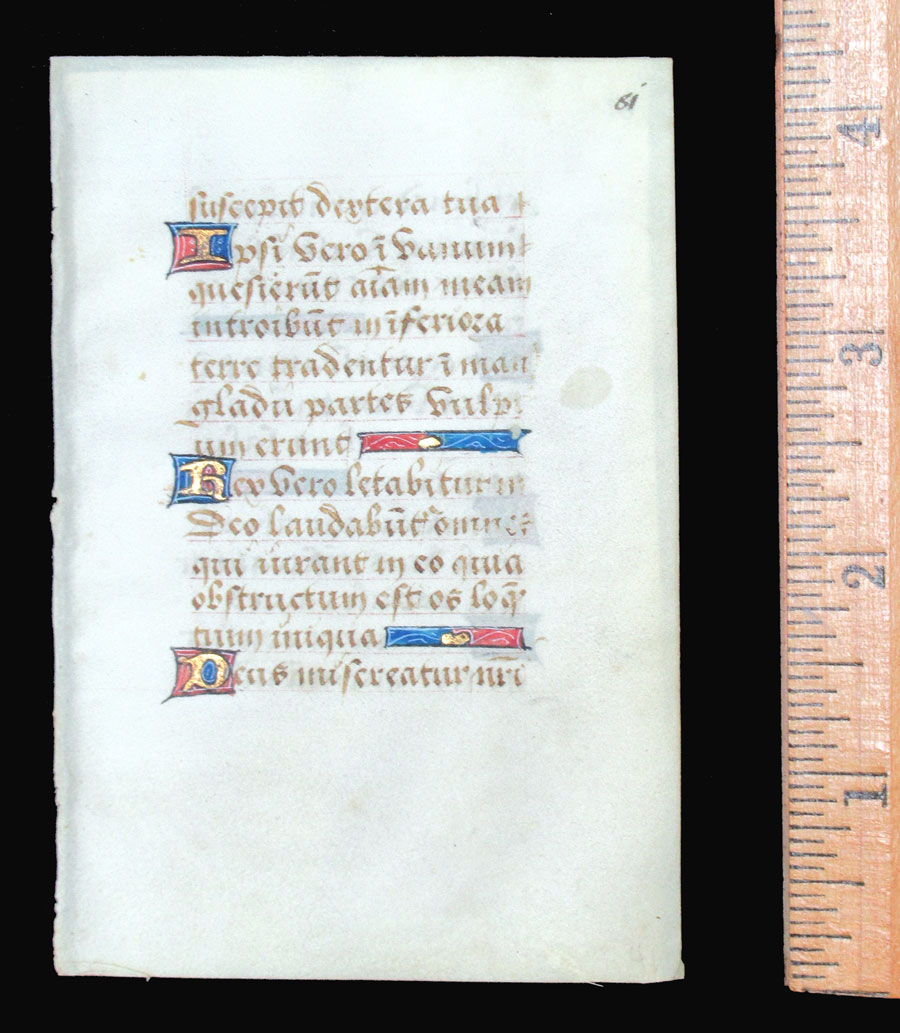 61
suscepit dextera tua
Ipsi vero ī vanum
quesierūt aīam meam
introibūt in īferiora
terre tradentur ī man
gladii partes vulpi
um erunt
Rex vero letabitur in
Deo laudabūt omnes
qui iurant in eo quia
obstructum est os loq̄
tium iniqua
Deus misereatur nr̄i
4
3
2
1